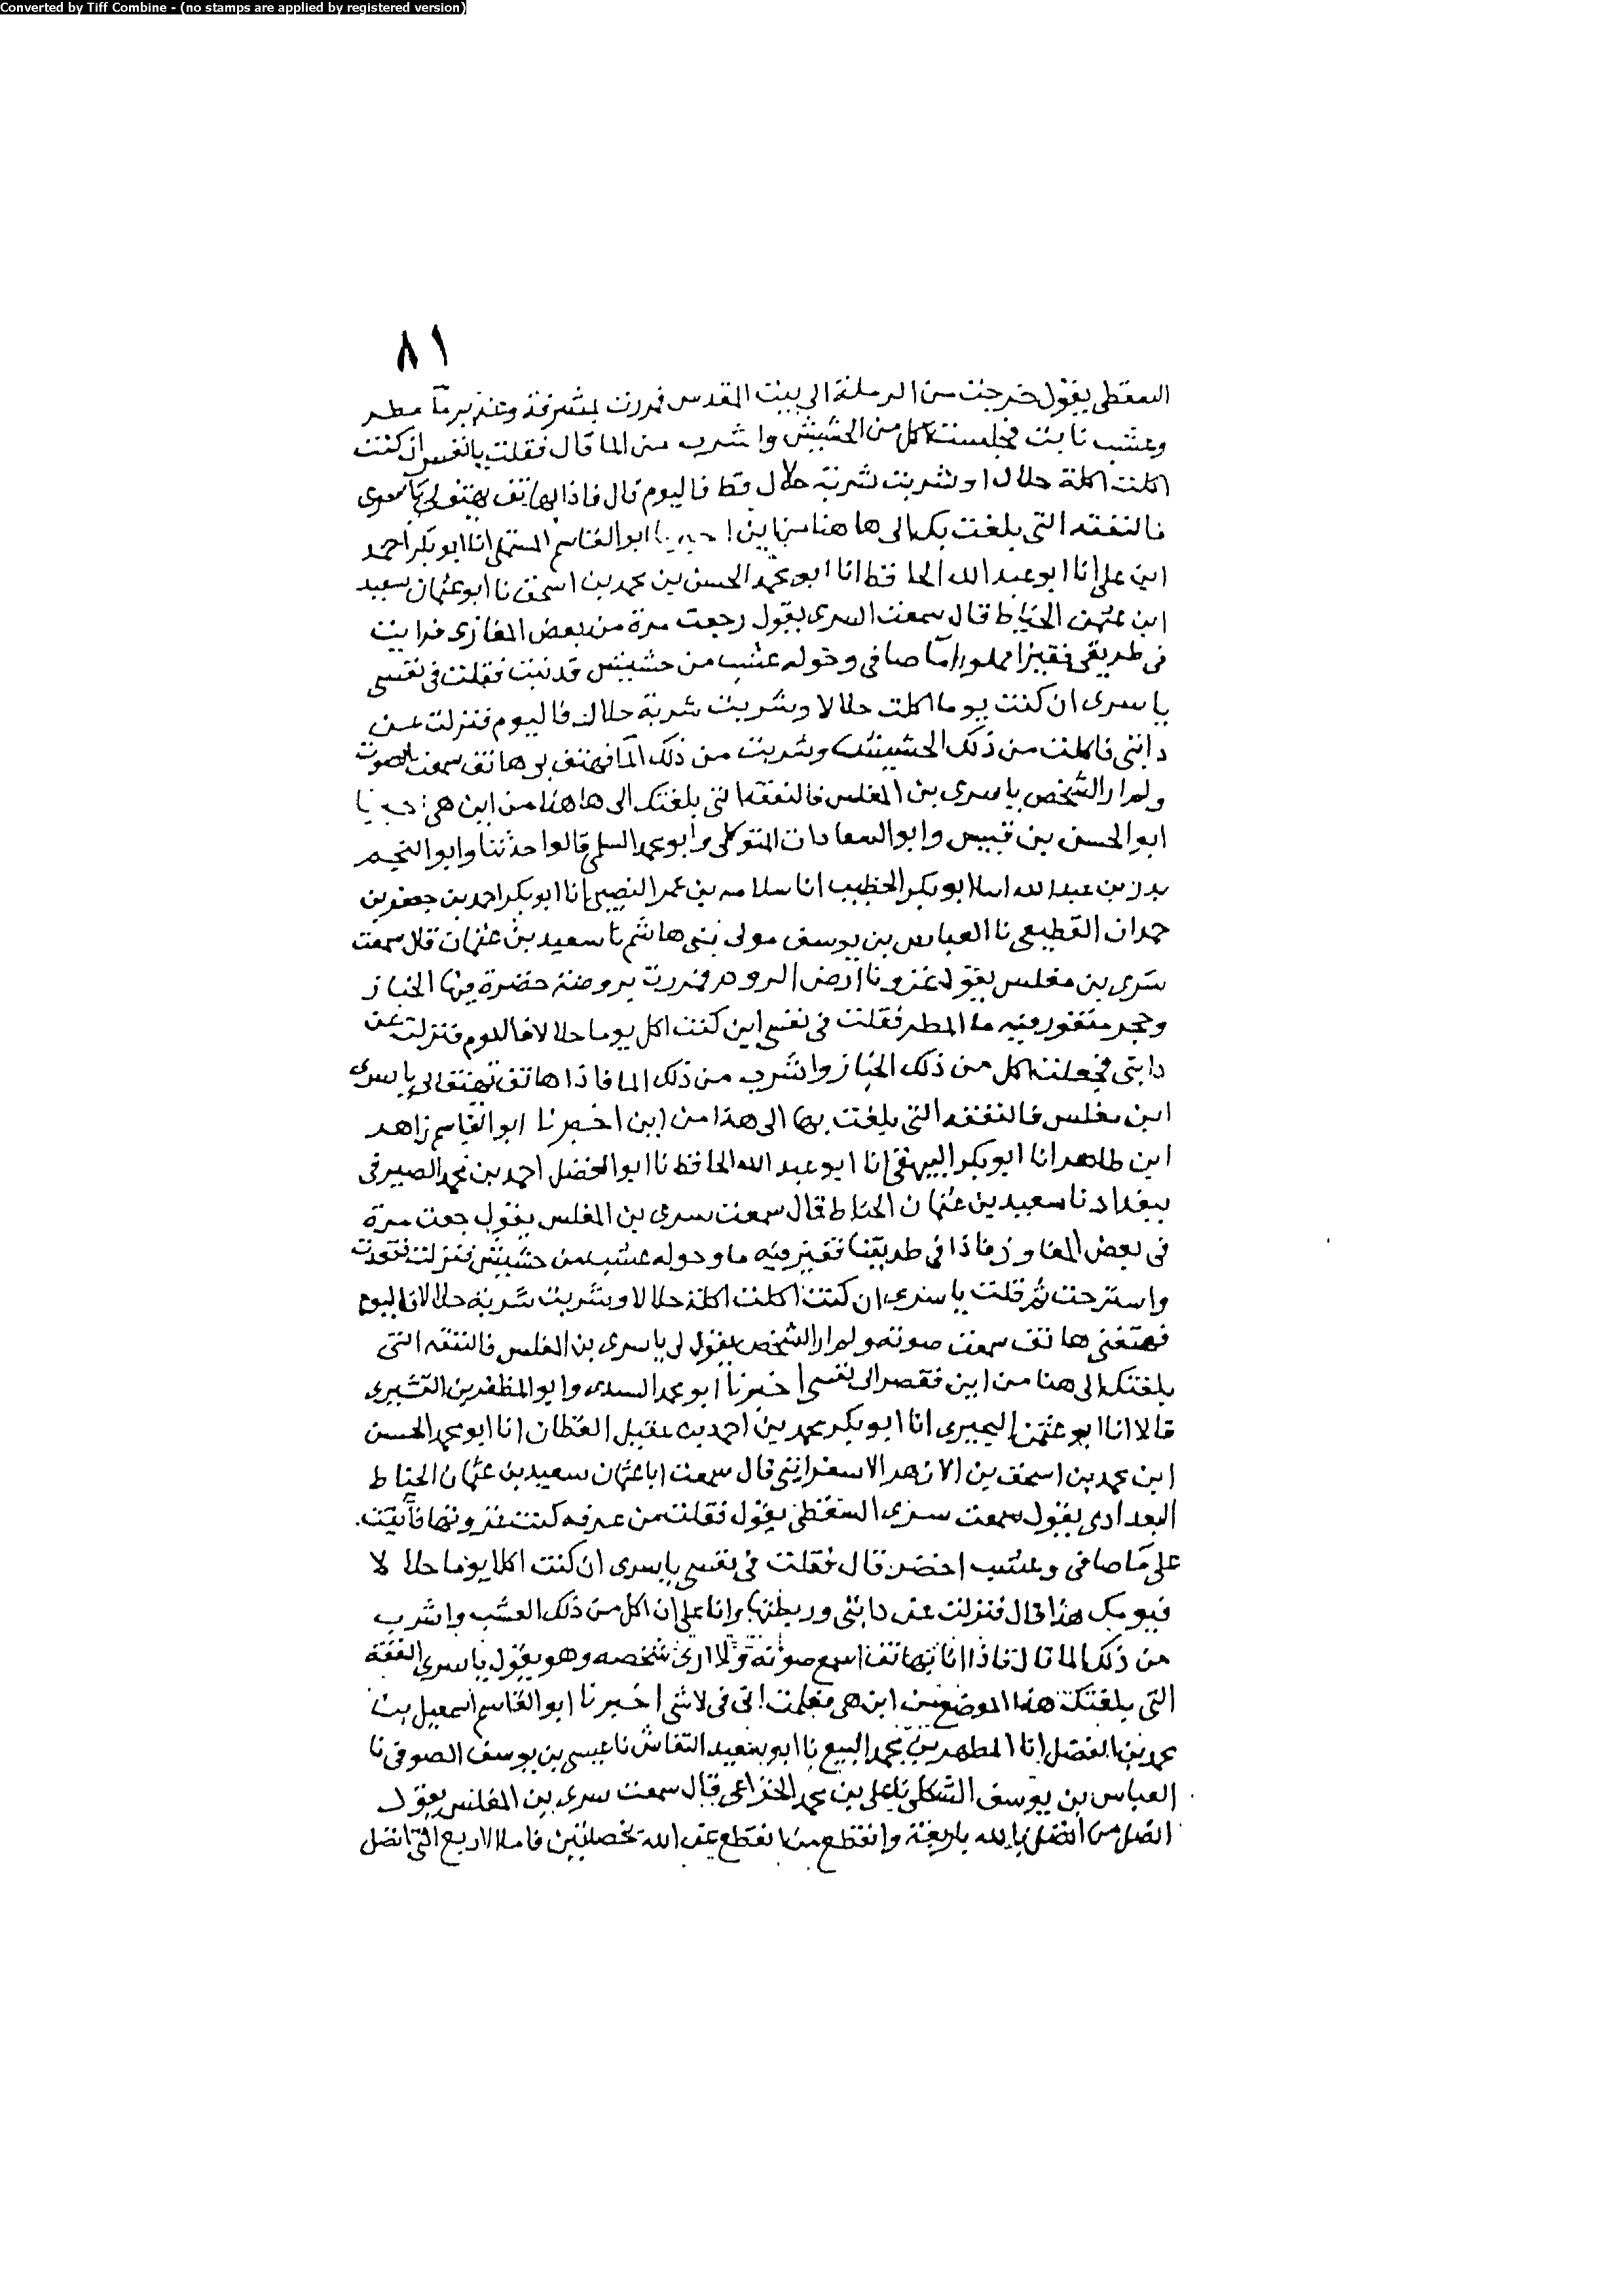 Converted by Tiff Combine - (no stamps are applied by registered version)
٨١
السقطى يقول خرجت من الرملة الى بيت المقدس فمررت بمشرفة وغدير مآ مطر
وعشب نابت فجلست اكل من الحشيش واشرب من الما قال فقلت يانفس ان كنت
اكلت اكلة حلالا وشربت شربة حلال قط فاليوم قال فاذا بهاتف يهتف بى ياسرى
فالنفقه التى بلغت بك الى هاهنا من اين ابو القاسم المستملى انا ابو بكر احمد
ابن على انا ابو عبد الله الحافظ انا ابو محمد الحسن بن محمد بن اسحق نا ابو عثمان سعيد
ابن عثمن الخياط قال سمعت السرى يقول رجعت مرة من بعض المغازى فرايت
فى طريقى فقيزا مملوا مآ صافى وحوله عشب من حشيش قد نبت فقلت فى نفسى
يا سرى ان كنت يوما اكلت حلالا وشربت شربة حلال فاليوم فنزلت عن
دابتى فاكلت من ذلك الحشيش وشربت من ذلك المآ فهتف بى هاتف سمعت الصوت
ولم ار الشخص يا سرى بن المغلس فالنفقه التى بلغتك الى هاهنا من اين هى
ابو الحسن بن قبيس وابو السعادات المتوكلى وابو محمد السلمى قالوا حدثنا وابو النجم
بدر بن عبد الله ابو بكر الخطيب انا سلامه بن عمر النصيبى انا ابو بكر احمد بن جعفر بن
حمدان القطيعى نا العباس بن يوسف مولى بنى هاشم نا سعيد بن عثمان قال سمعت
سرى بن مغلس يقول غزونا ارض الروم فمررت بروضة خضرة فيها الخباز
وحجر منقور فيه ما المطر فقلت فى نفسى اين كنت اكل يوما حلالا فاليوم فنزلت عن
دابتى فجعلت اكل من ذلك الخباز واشرب من ذلك الما فاذا هاتف يهتف لى يا سرى
ابن مغلس فالنفقه التى بلغت بها الى هذا من اين اخبرنا ابو القاسم زاهد
ابن طاهر انا ابو بكر البيهقى انا ابو عبد الله الحافظ نا ابو الفضل احمد بن محمد الصيرفى
ببغداد نا سعيد بن عثمان الحناط قال سمعت سرى بن المغلس يقول جعت مرة
فى بعض المفاوز فاذا فى طريقنا فقيز فيه ما وحوله عشب من حشيش فنزلت فقعدت
واسترحت ثم قلت يا سرى ان كنت اكلت اكلة حلالا وشربت شربة حلالا فاليوم
فهتفنى هاتف سمعت صوته ولم ار الشخص يقول لى يا سرى بن المغلس فالنفقه التى
بلغتك الى هنا من اين فقصر الى نفسى اخبرنا ابو محمد السيدى وابو المظفر بن القشيرى
قالا انا ابو عثمن البحيرى انا ابو بكر محمد بن احمد بن عقيل القطان انا ابو محمد الحسن
ابن محمد بن اسحق بن الازهر الاسفراينى قال سمعت ابا عثمان سعيد بن عثمان الحناط
البغدادى يقول سمعت سرى السقطى يقول فقلت من غزوه كنت غزوتها فاتيت
على مآ صافى وعشب اخضر قال فقلت فى نفسى يا سرى ان كنت اكلا يوما حلالا
فيومك هذا قال فنزلت عن دابتى وربطتها وانا على ان اكل من ذلك العشب واشرب
من ذلك الما قال فاذا انا بهاتف اسمع صوته ولا ارى شخصه وهو يقول يا سرى النفقة
التى بلغتك هذا الموضع من اين هى فعلمت انى فى لا شى اخبرنا ابو القاسم اسمعيل بن
محمد بن الفضل انا المطهر بن محمد البيع نا ابو سعيد النقاش نا عيسى بن يوسف الصوفى نا
العباس بن يوسف الشكلى نا على بن محمد الخزاعى قال سمعت سرى بن المغلس يقول
اتصل من اتصل بالله باربعة وانقطع من انقطع عن الله بخصلتين فاما الاربع التى اتصل